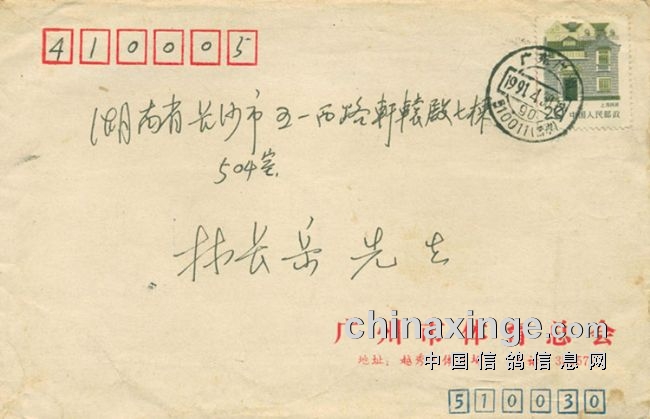 410005
上海民居
中国人民邮政
广东广州
1991.4
510011
湖南省长沙市五一西路轩辕殿七栋
504室
林长岳先生
广州市体育总会
chinaxinge.com
地址：越秀
中国信鸽信息网
510030